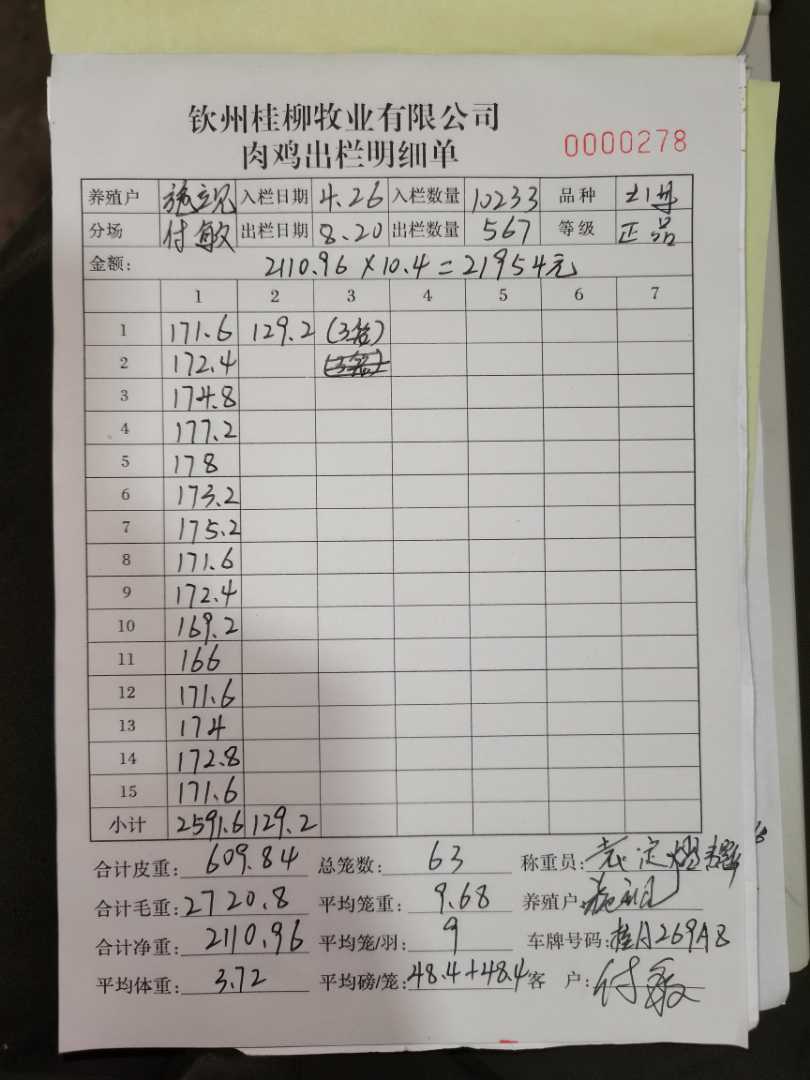 钦州桂柳牧业有限公司
肉鸡出栏明细单
0000278
养殖户 施立况 入栏日期 4.26 入栏数量 10233 品种 土1母
分场 付敏 出栏日期 8.20 出栏数量 567 等级 正品
金额: 2110.96×10.4=21954元
1 2 3 4 5 6 7
1 171.6 129.2 (3笼)
2 172.4 (3笼)
3 174.8
4 177.2
5 178
6 173.2
7 175.2
8 171.6
9 172.4
10 169.2
11 166
12 171.6
13 174
14 172.8
15 171.6
小计 2591.6 129.2
合计皮重: 609.84 总笼数: 63 称重员:
合计毛重: 2720.8 平均笼重: 9.68 养殖户:
合计净重: 2110.96 平均笼/羽: 9 车牌号码: 桂A269A8
平均体重: 3.72 平均磅/笼: 48.4+48.4 客 户: 付敏